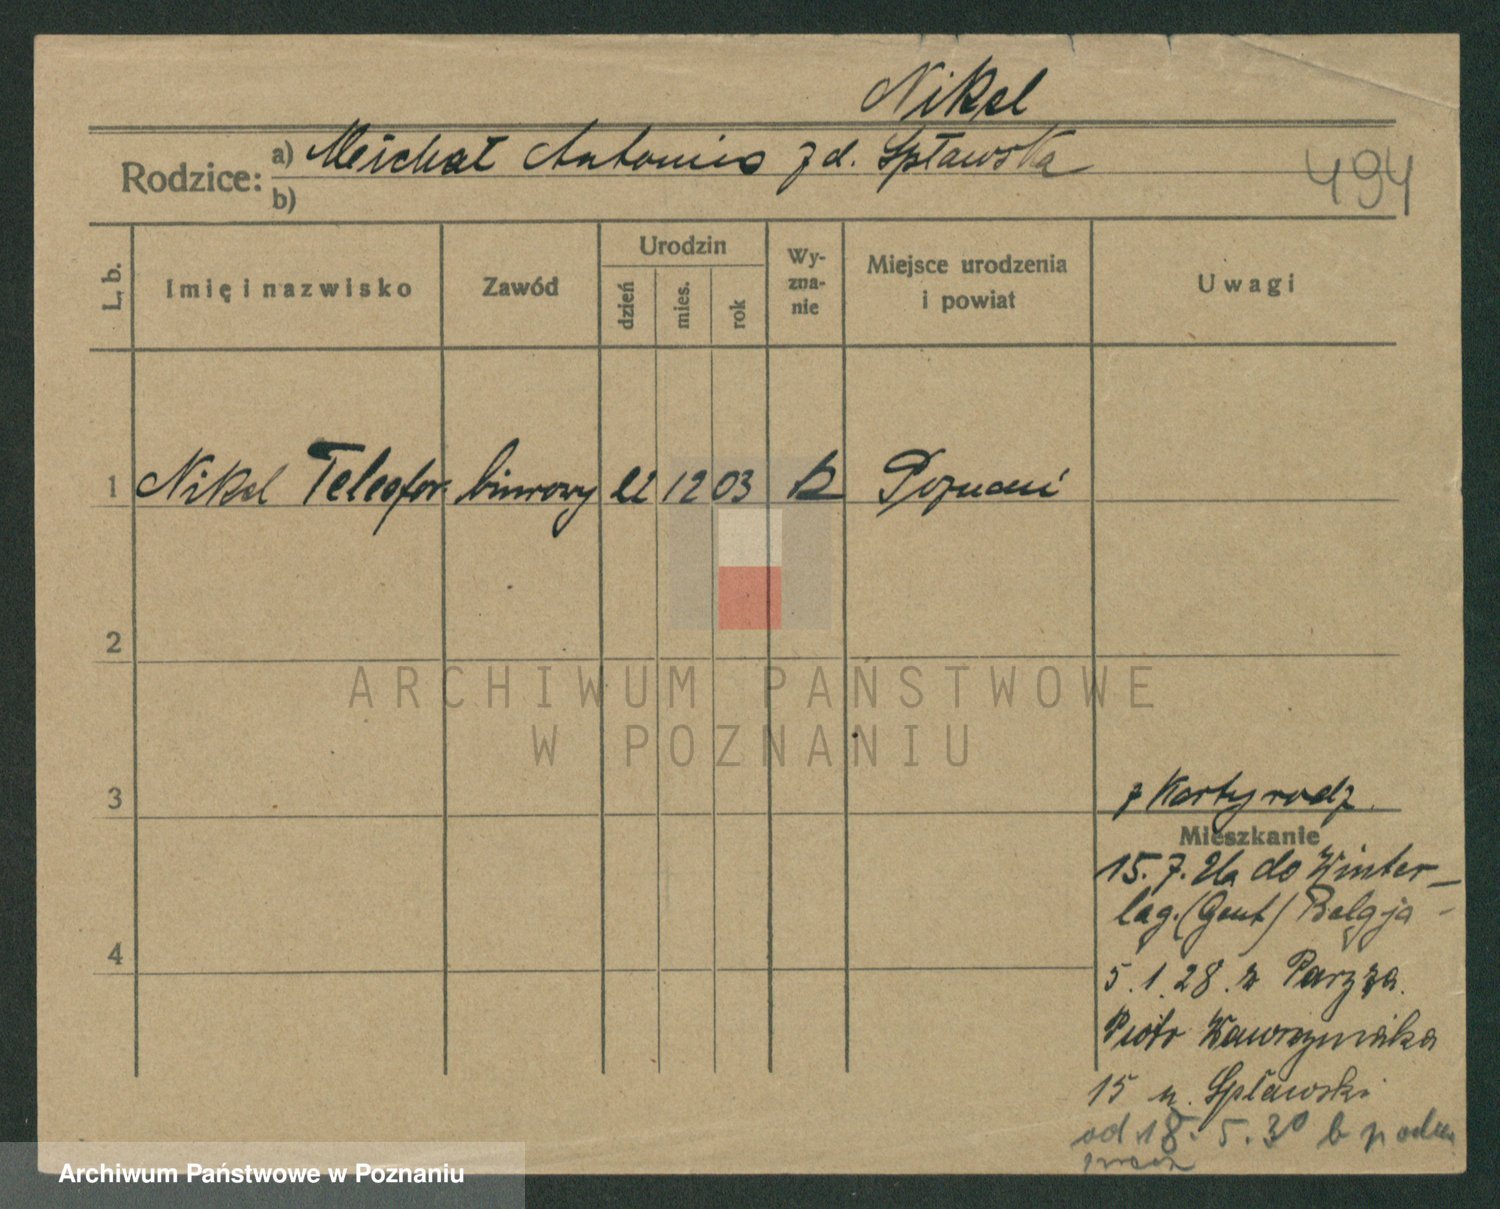 Nikel
Rodzice: a) Meichał Antonies z d. Spławska
b)
494
L. b. Imię i nazwisko Zawód Urodzin dzień mies. rok Wy-zna-nie Miejsce urodzenia i powiat Uwagi
1 Nikel Telesfor biurowy 22 12 03 k Poznań
2
ARCHIWUM PAŃSTWOWE
W POZNANIU
3
z Karty rodz.
Mieszkanie
15. 7. do Winter-
lag. (Gent) Belgja
4
5. 1. 28. z Paryża
Piotr Wawrzyniaka
15 u. Spławski
od 18. 5. 30 b
Archiwum Państwowe w Poznaniu